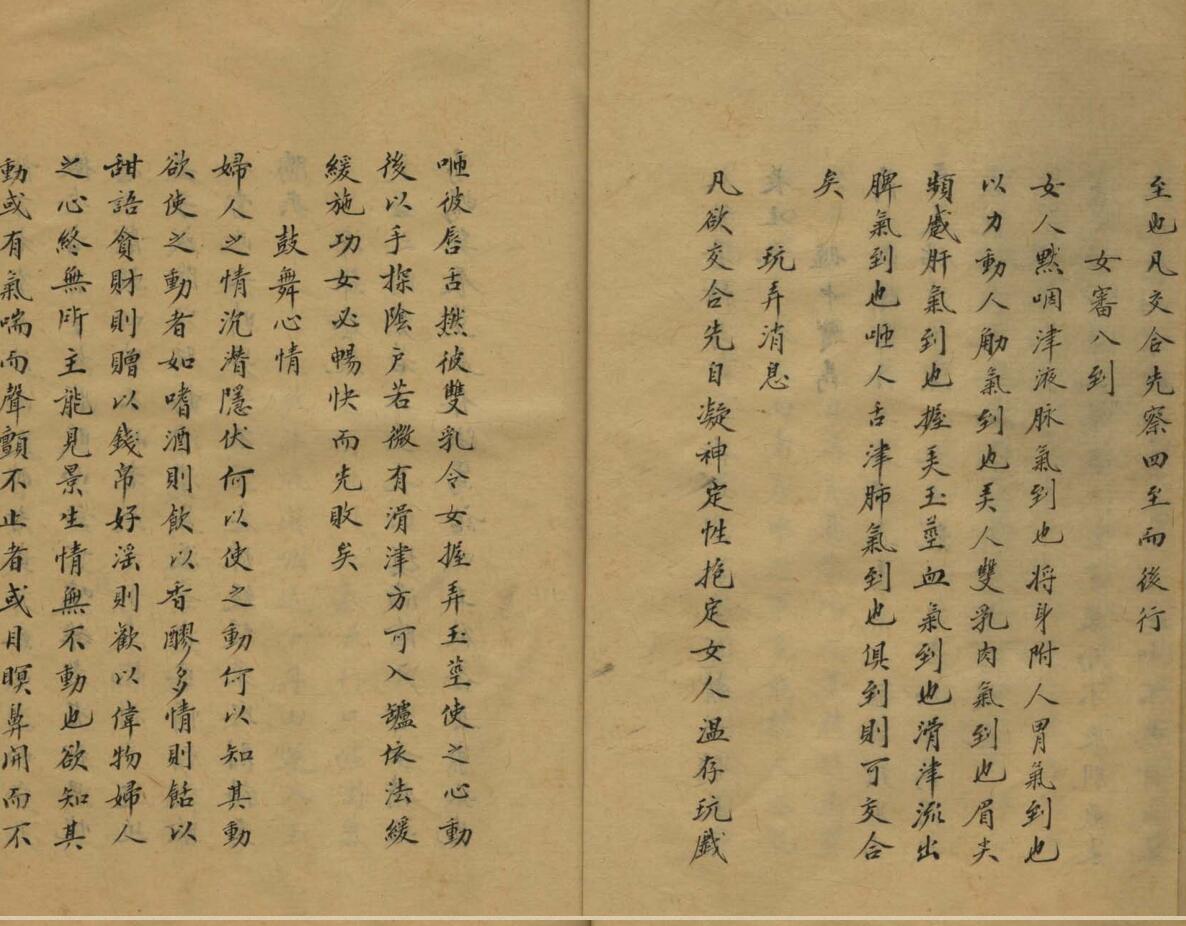 至也凡交合先察四至而後行
女審八到
女人黙咽津液脉氣到也将身附人胃氣到也
以力動人觔氣到也美人雙乳肉氣到也眉尖
頻蹙肝氣到也握美玉莖血氣到也滑津流出
脾氣到也咂人舌津肺氣到也俱到則可交合
矣
玩弄消息
凡欲交合先自凝神定性抱定女人温存玩戲
咂彼唇舌撚彼雙乳令女握弄玉莖使之心動
後以手探陰户若微有滑津方可入罏依法緩
緩施功女必暢快而先敗矣
鼓舞心情
婦人之情沉潛隱伏何以使之動何以知其動
欲使之動者如嗜酒則飲以香醪多情則餂以
甜語貪財則贈以錢帛好淫則歡以偉物婦人
之心終無所主能見景生情無不動也欲知其
動或有氣喘而聲顫不止者或目瞑鼻開而不